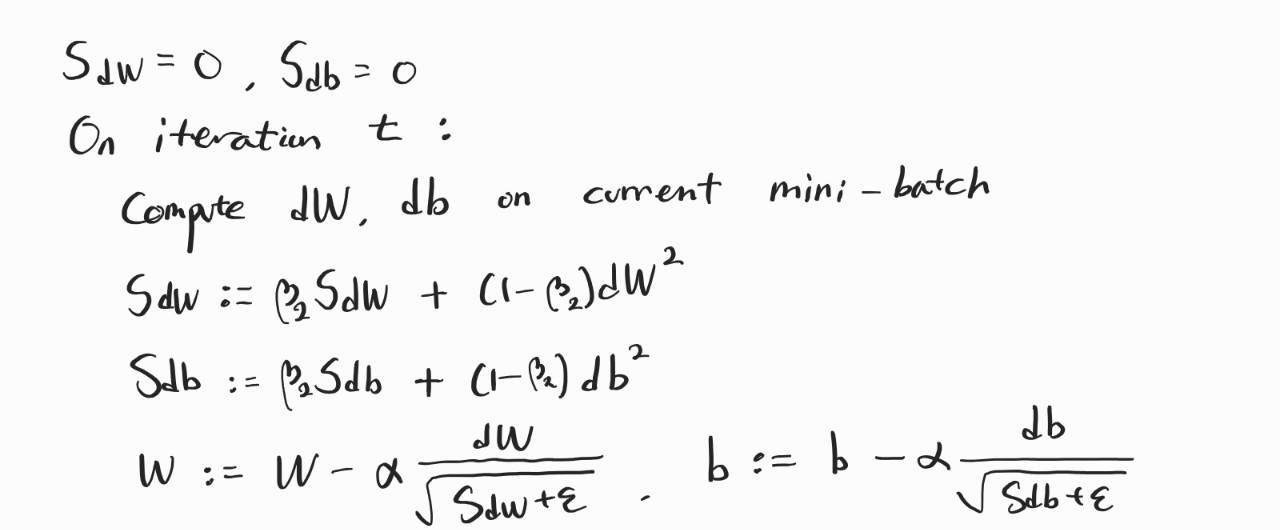 S_dW = 0, S_db = 0
On iteration t :
Compute dW, db on current mini-batch
S_dW := β₂ S_dW + (1-β₂) dW²
S_db := β₂ S_db + (1-β₂) db²
W := W - α dW/√(S_dW+ε), b := b - α db/√(S_db+ε)